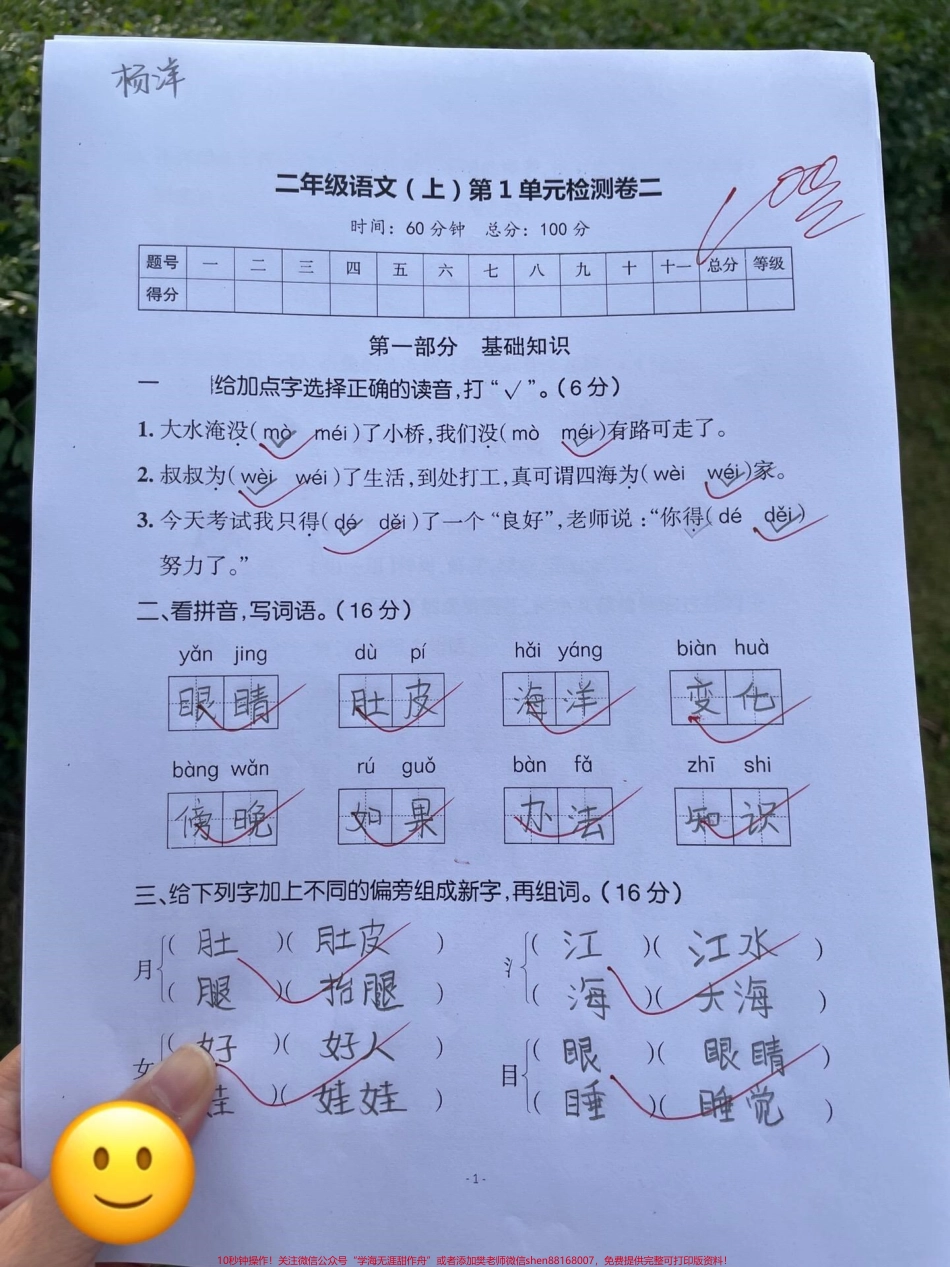 杨洋
二年级语文(上)第1单元检测卷二
100
时间：60分钟 总分：100分
题号 一 二 三 四 五 六 七 八 九 十 十一 总分 等级
得分
第一部分 基础知识
一 给加点字选择正确的读音,打“√”。(6分)
1. 大水淹没(mò méi)了小桥,我们没(mò méi)有路可走了。
2. 叔叔为(wèi wéi)了生活,到处打工,真可谓四海为(wèi wéi)家。
3. 今天考试我只得(dé děi)了一个“良好”,老师说：“你得(dé děi)
努力了。”
二、看拼音,写词语。(16分)
yǎn jing dù pí hǎi yáng biàn huà
眼睛 肚皮 海洋 变化
bàng wǎn rú guǒ bàn fǎ zhī shi
傍晚 如果 办法 知识
三、给下列字加上不同的偏旁组成新字,再组词。(16分)
月 (肚)(肚皮) 氵 (江)(江水)
(腿)(抬腿) (海)(大海)
女 (好)(好人) 目 (眼)(眼睛)
娃)(娃娃) (睡)(睡觉)
-1-
10秒钟操作！关注微信公众号“学海无涯甜作舟”或者添加樊老师微信shen88168007，免费提供完整可打印版资料！